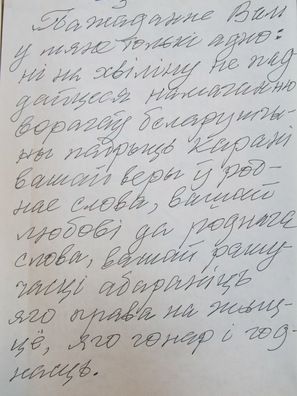 Пажаданне Вам
у мяне толькі адно:
ні на хвіліну не пад
дайцеся намаганню
ворагаў беларушчы-
ны падрэзаць карані
вашай веры ў род-
нае слова, вашай
любові да роднага
слова, вашай рашу-
часці абараніць
яго права на жыц-
цё, яго гонар і год-
насць.